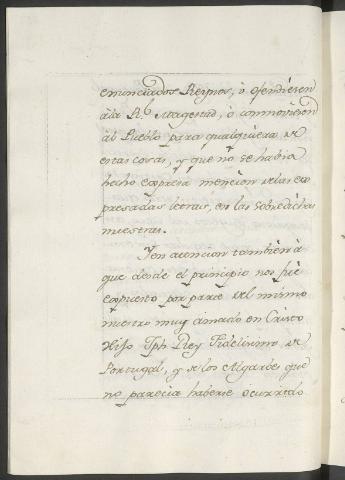 enunciados Reynos, ò ofendiesen
à la R.l Magestad, ò conmoviesen
al Pueblo para qualquiera de
estas cosas, y que no se habia
hecho expresa mencion de las ex
presadas letras, en las sobredichas
nuestras.
Y en atencion tambien à
que desde el principio nos fue
expuesto por parte del mismo
nuestro muy amado en Cristo
Hijo Jph Rey Fidelisimo de
Portugal, y de los Algarbes que
no parecia haberse ocurrido